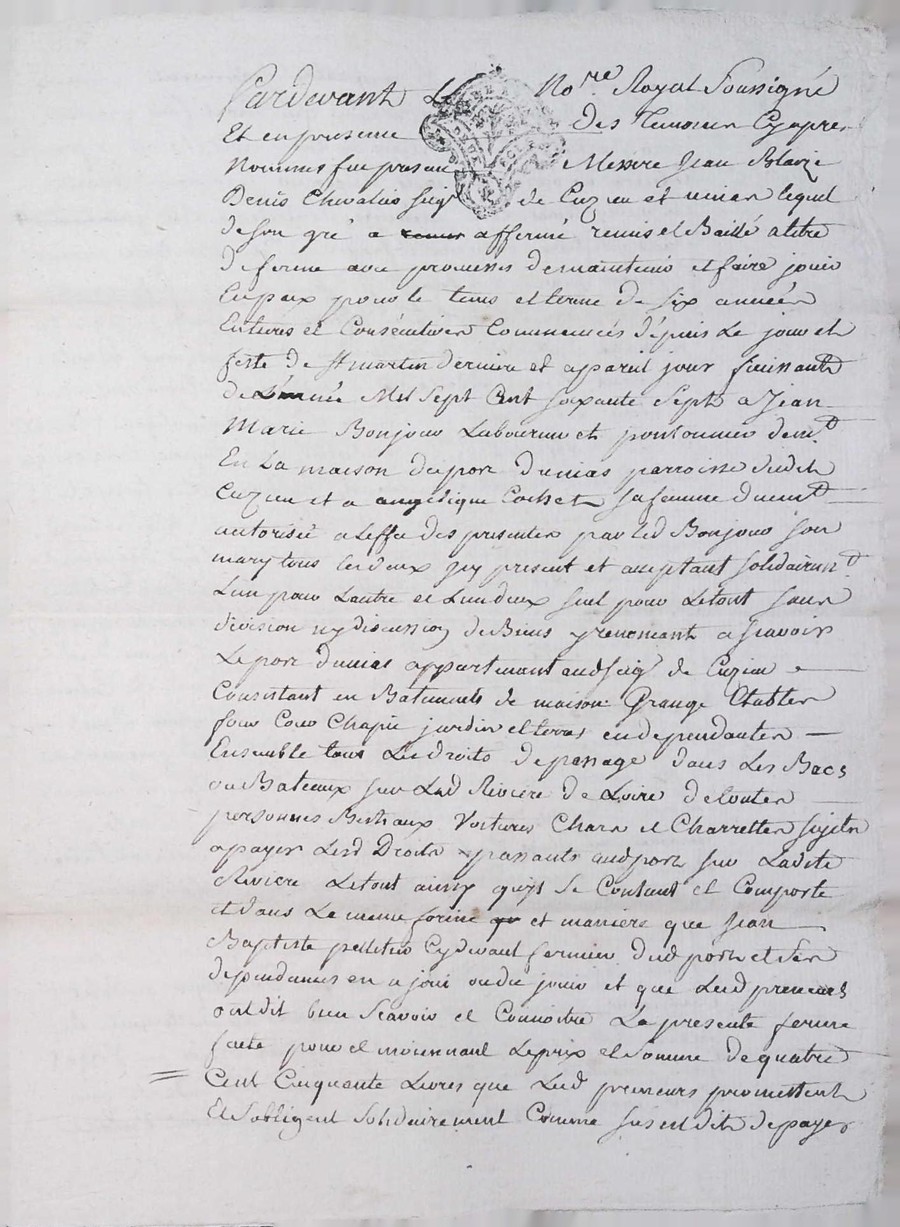 Pardevant Le No.re Royal Soussigné
Et en presence des Temoins Cyapres
Nommes fut present Messire Jean Blaize
Denis Chevalier seigr de Cuzieu et unias lequel
de son gré a affermé remis et Baillé a titre
de ferme avec promesses de maintenir et faire jouir
En paix pour le tems et terme de six années
Entieres et Consécutives Commencés depuis Le jour et
feste de St martin derniere et apareil jour finissants
de L'année Mil Sept Cent soixante Sept a Jean
Marie Bonjour Laboureur et pontonnier dem.t
En La maison du port dunias parroisse dudit
Cuzieu et a angelique Cochet sa femme duem.t
autorisée a Leffet des presentes par led Bonjour son
mary tous les deux icy present et acceptant solidairem.t
L'un pour Lautre et L'un deux seul pour Letout sans
division ny discussion de Biens y renoncant a scavoir
Le port dunias appartenant aud seigr de Cuzieu
Consistant en Batiments de maison Grange Etables
four Cour Chapit jardin et terres en dependantes
Ensemble tous Les droits de passage dans Les Bacs
ou Bateaux sur Lad Riviere de Loire de toutes
personnes Bestiaux Voitures Chars et Charrettes sujets
a payer Lesd Droits passants aud port sur Ladite
Riviere Le tout ainsy quil se Contient et Comporte
et dans La meme forme et maniere que Jean
Baptiste pelletier Cydevant fermier dud port et ses
dependances en a joui ou du jouir et que Lesd preneurs
ont dit bien Scavoir et Connoitre La presente ferme
faite pour et moiennant Le prix et Somme de quatre
Cent Cinquante Livres que Lesd preneurs promettent
et Sobligent Solidairement Comme sus est dit de payer